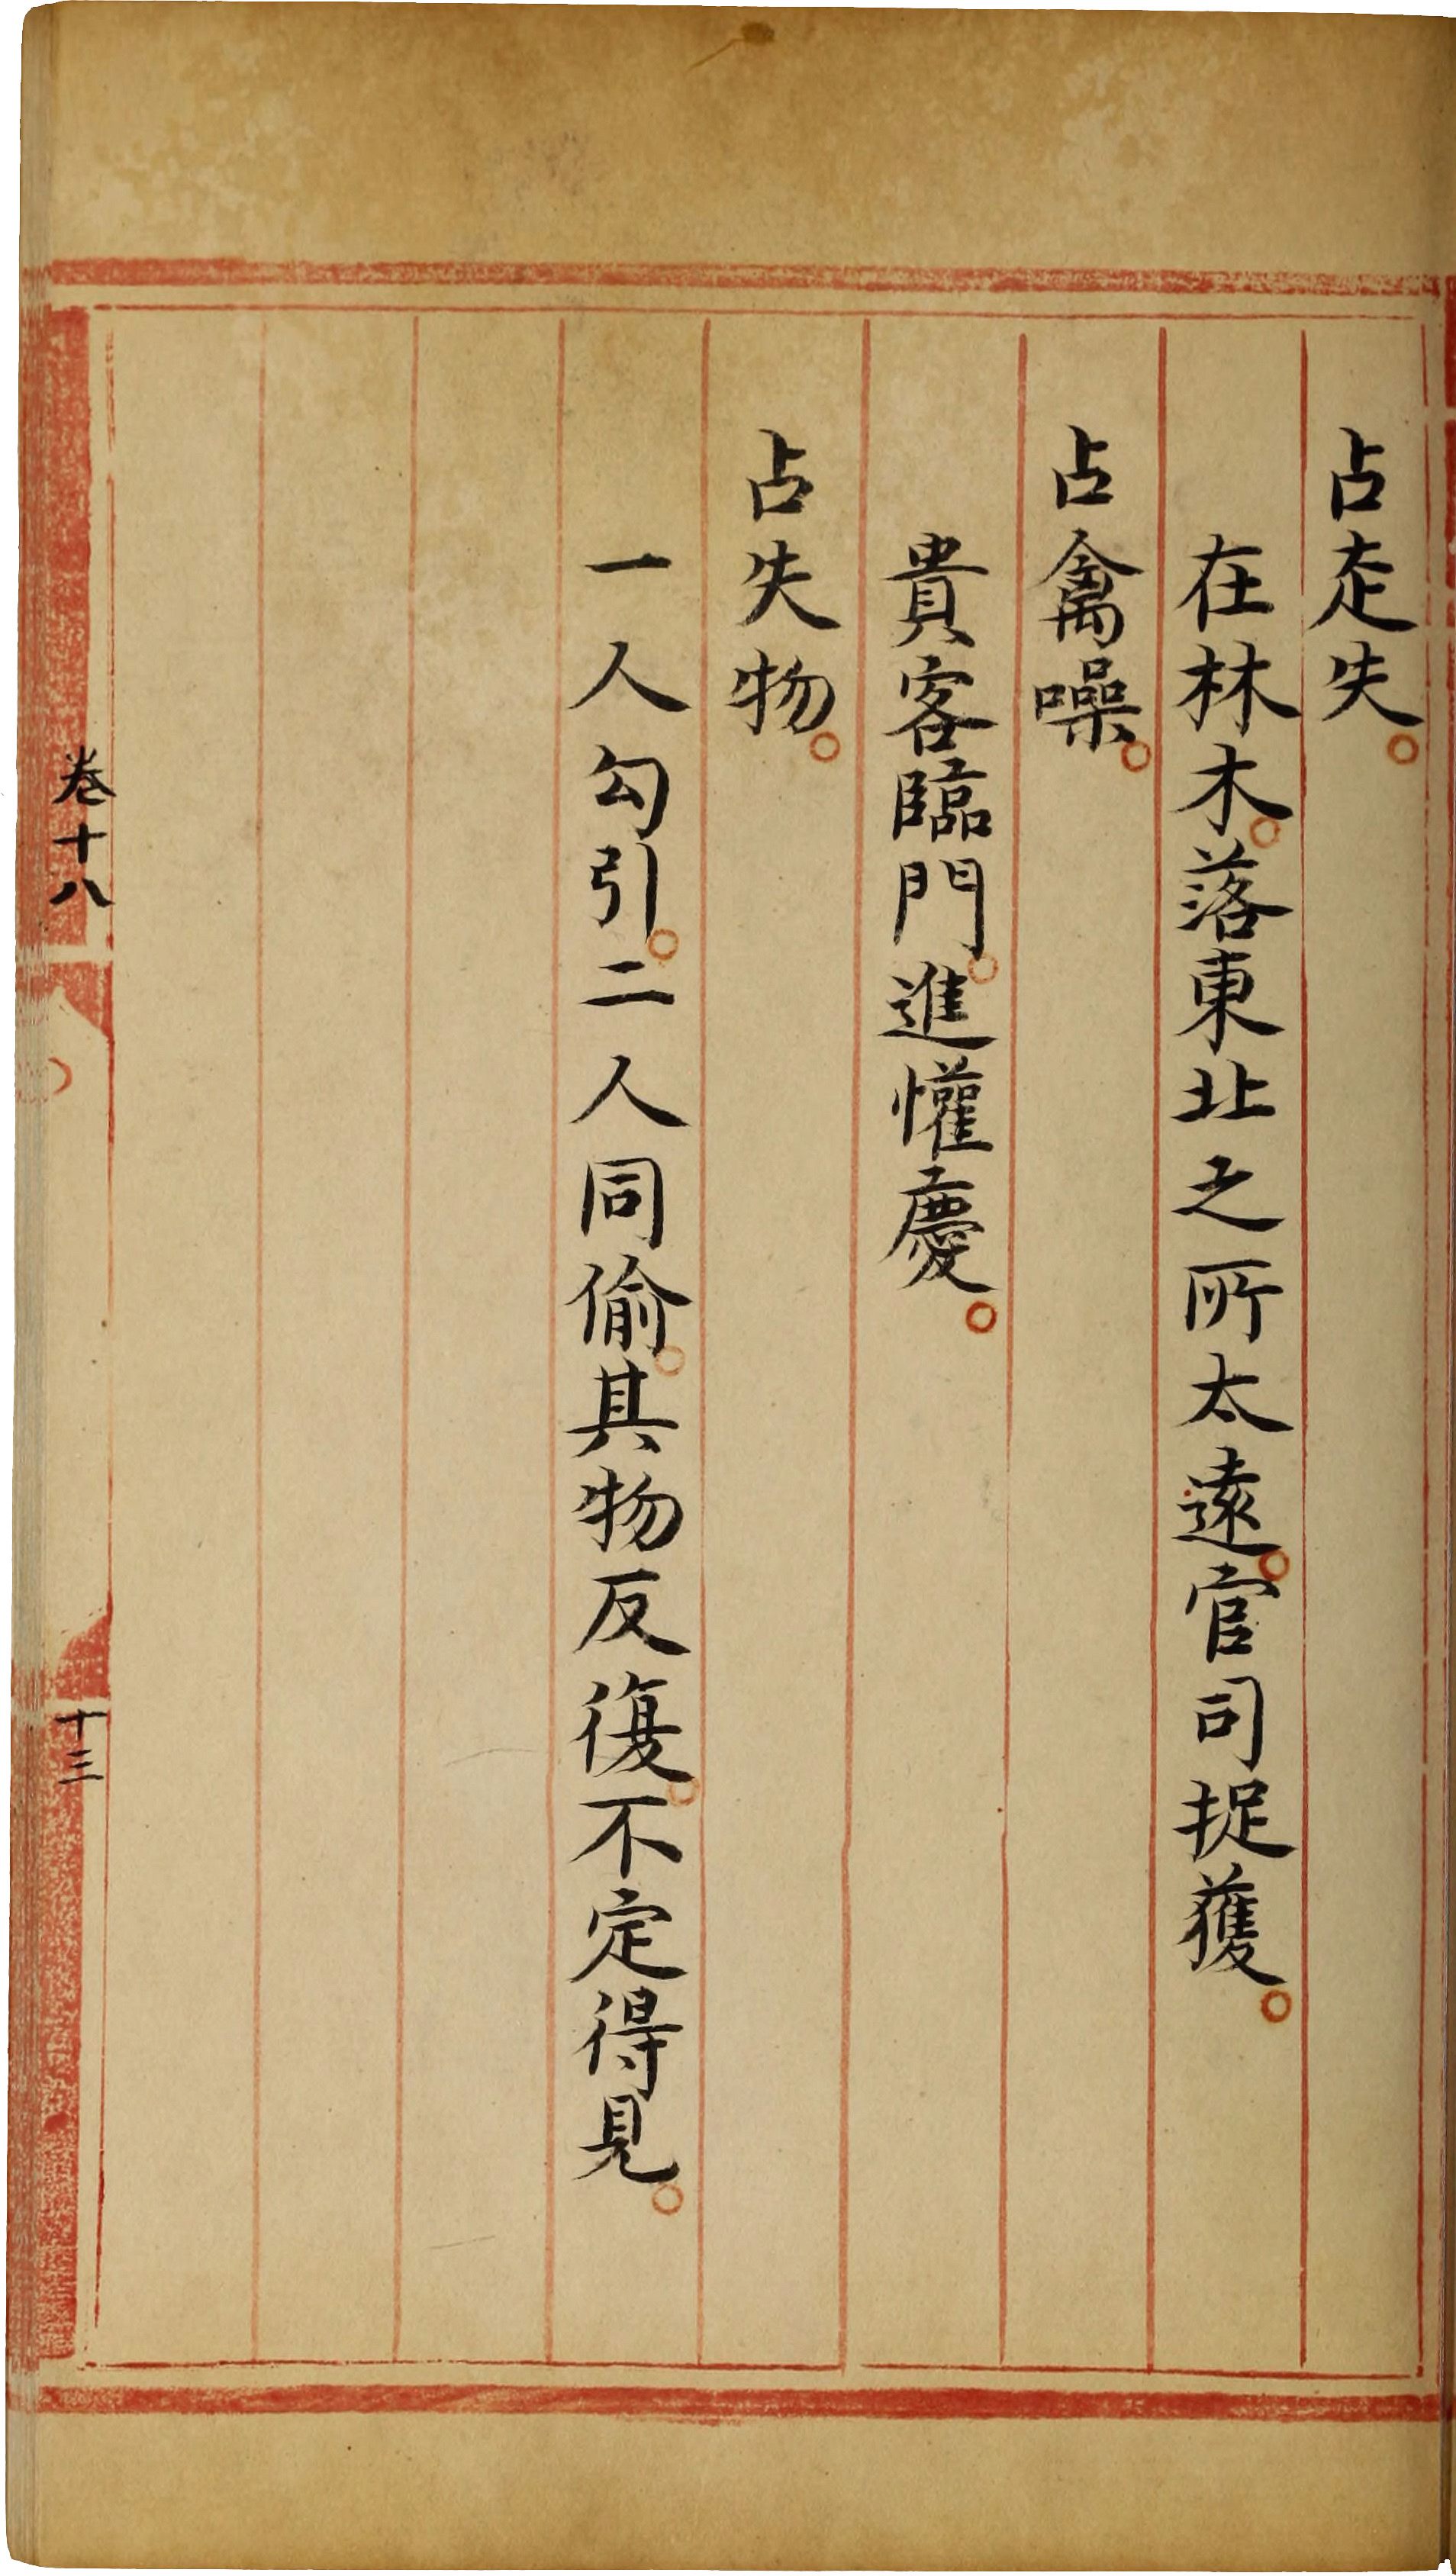 占走失。
在林木。落東北之所太遠。官司捉獲。
占禽噪。
貴客臨門。進懽慶。
占失物。
一人勾引。二人同偷。其物反復。不定得見。
卷十八
十三